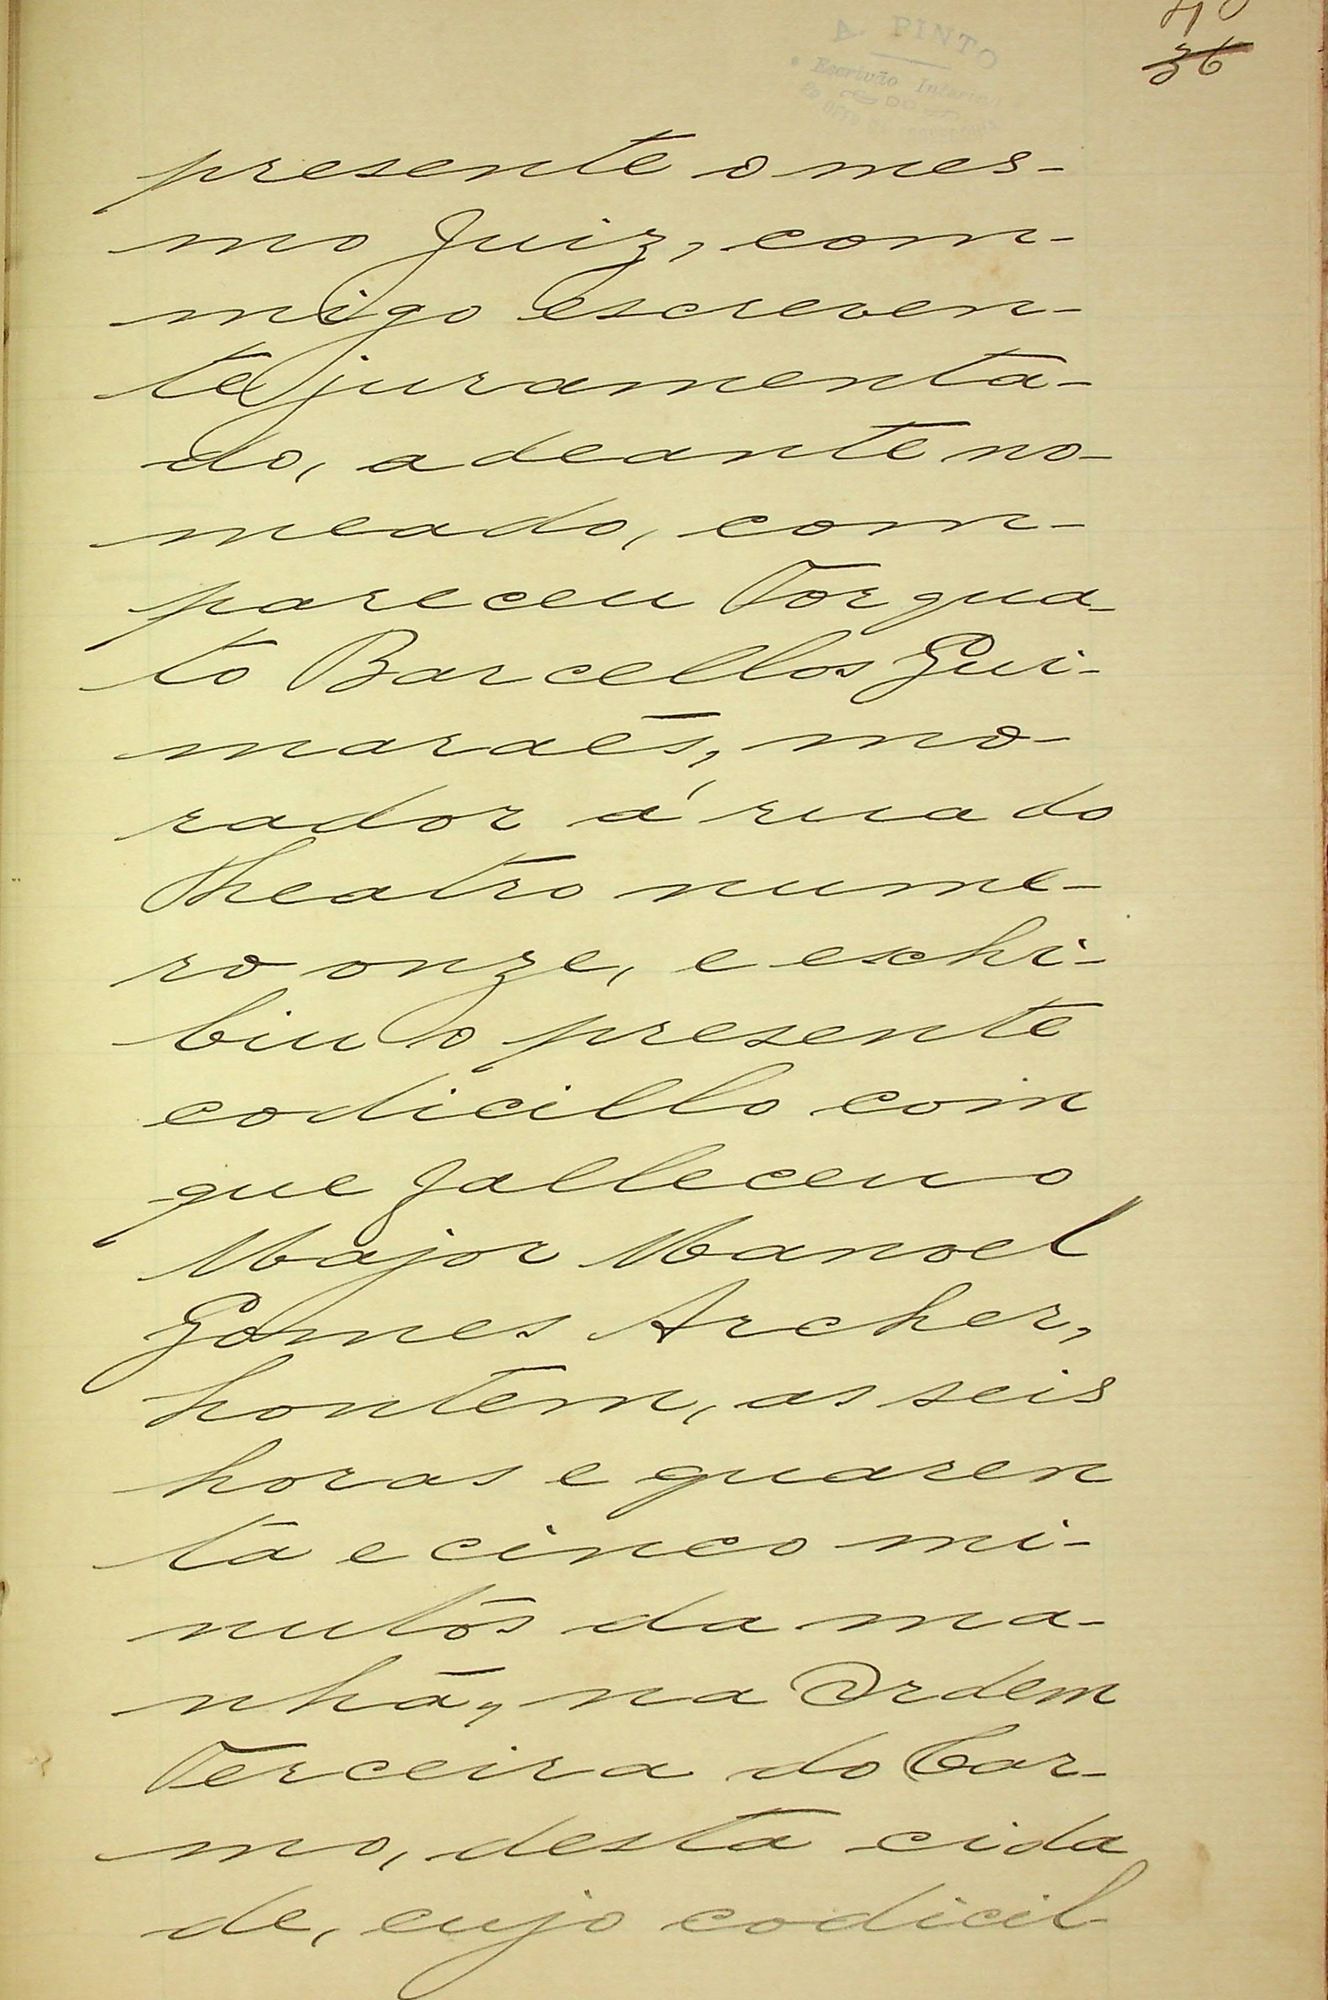 40
36
A. PINTO
Escrivão Interino
DO
presente o mes-
mo Juiz, com-
migo escreven-
te juramenta-
do, adeante no-
meado, com-
pareceu Torqua-
to Barcellos Gui-
maraēs, mo-
rador á rua do
Theatro nume-
ro onze, e exhi-
biu o presente
codicillo com
que falleceu o
Major Manoel
Gomes Archer,
hontem, as seis
horas e quaren
ta e cinco mi-
nutos da ma-
nhã, na Ordem
Terceira do Car-
mo, desta cida
de, cujo codicil-